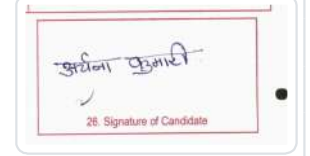 अर्चना कुमारी
26. Signature of Candidate